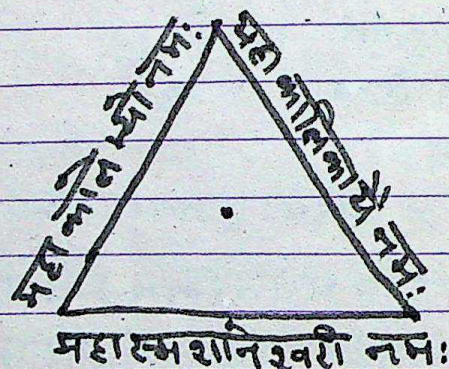 महा काल भ्यो नमः
महा कालिकायै नमः
महास्मशानेश्वरी नमः